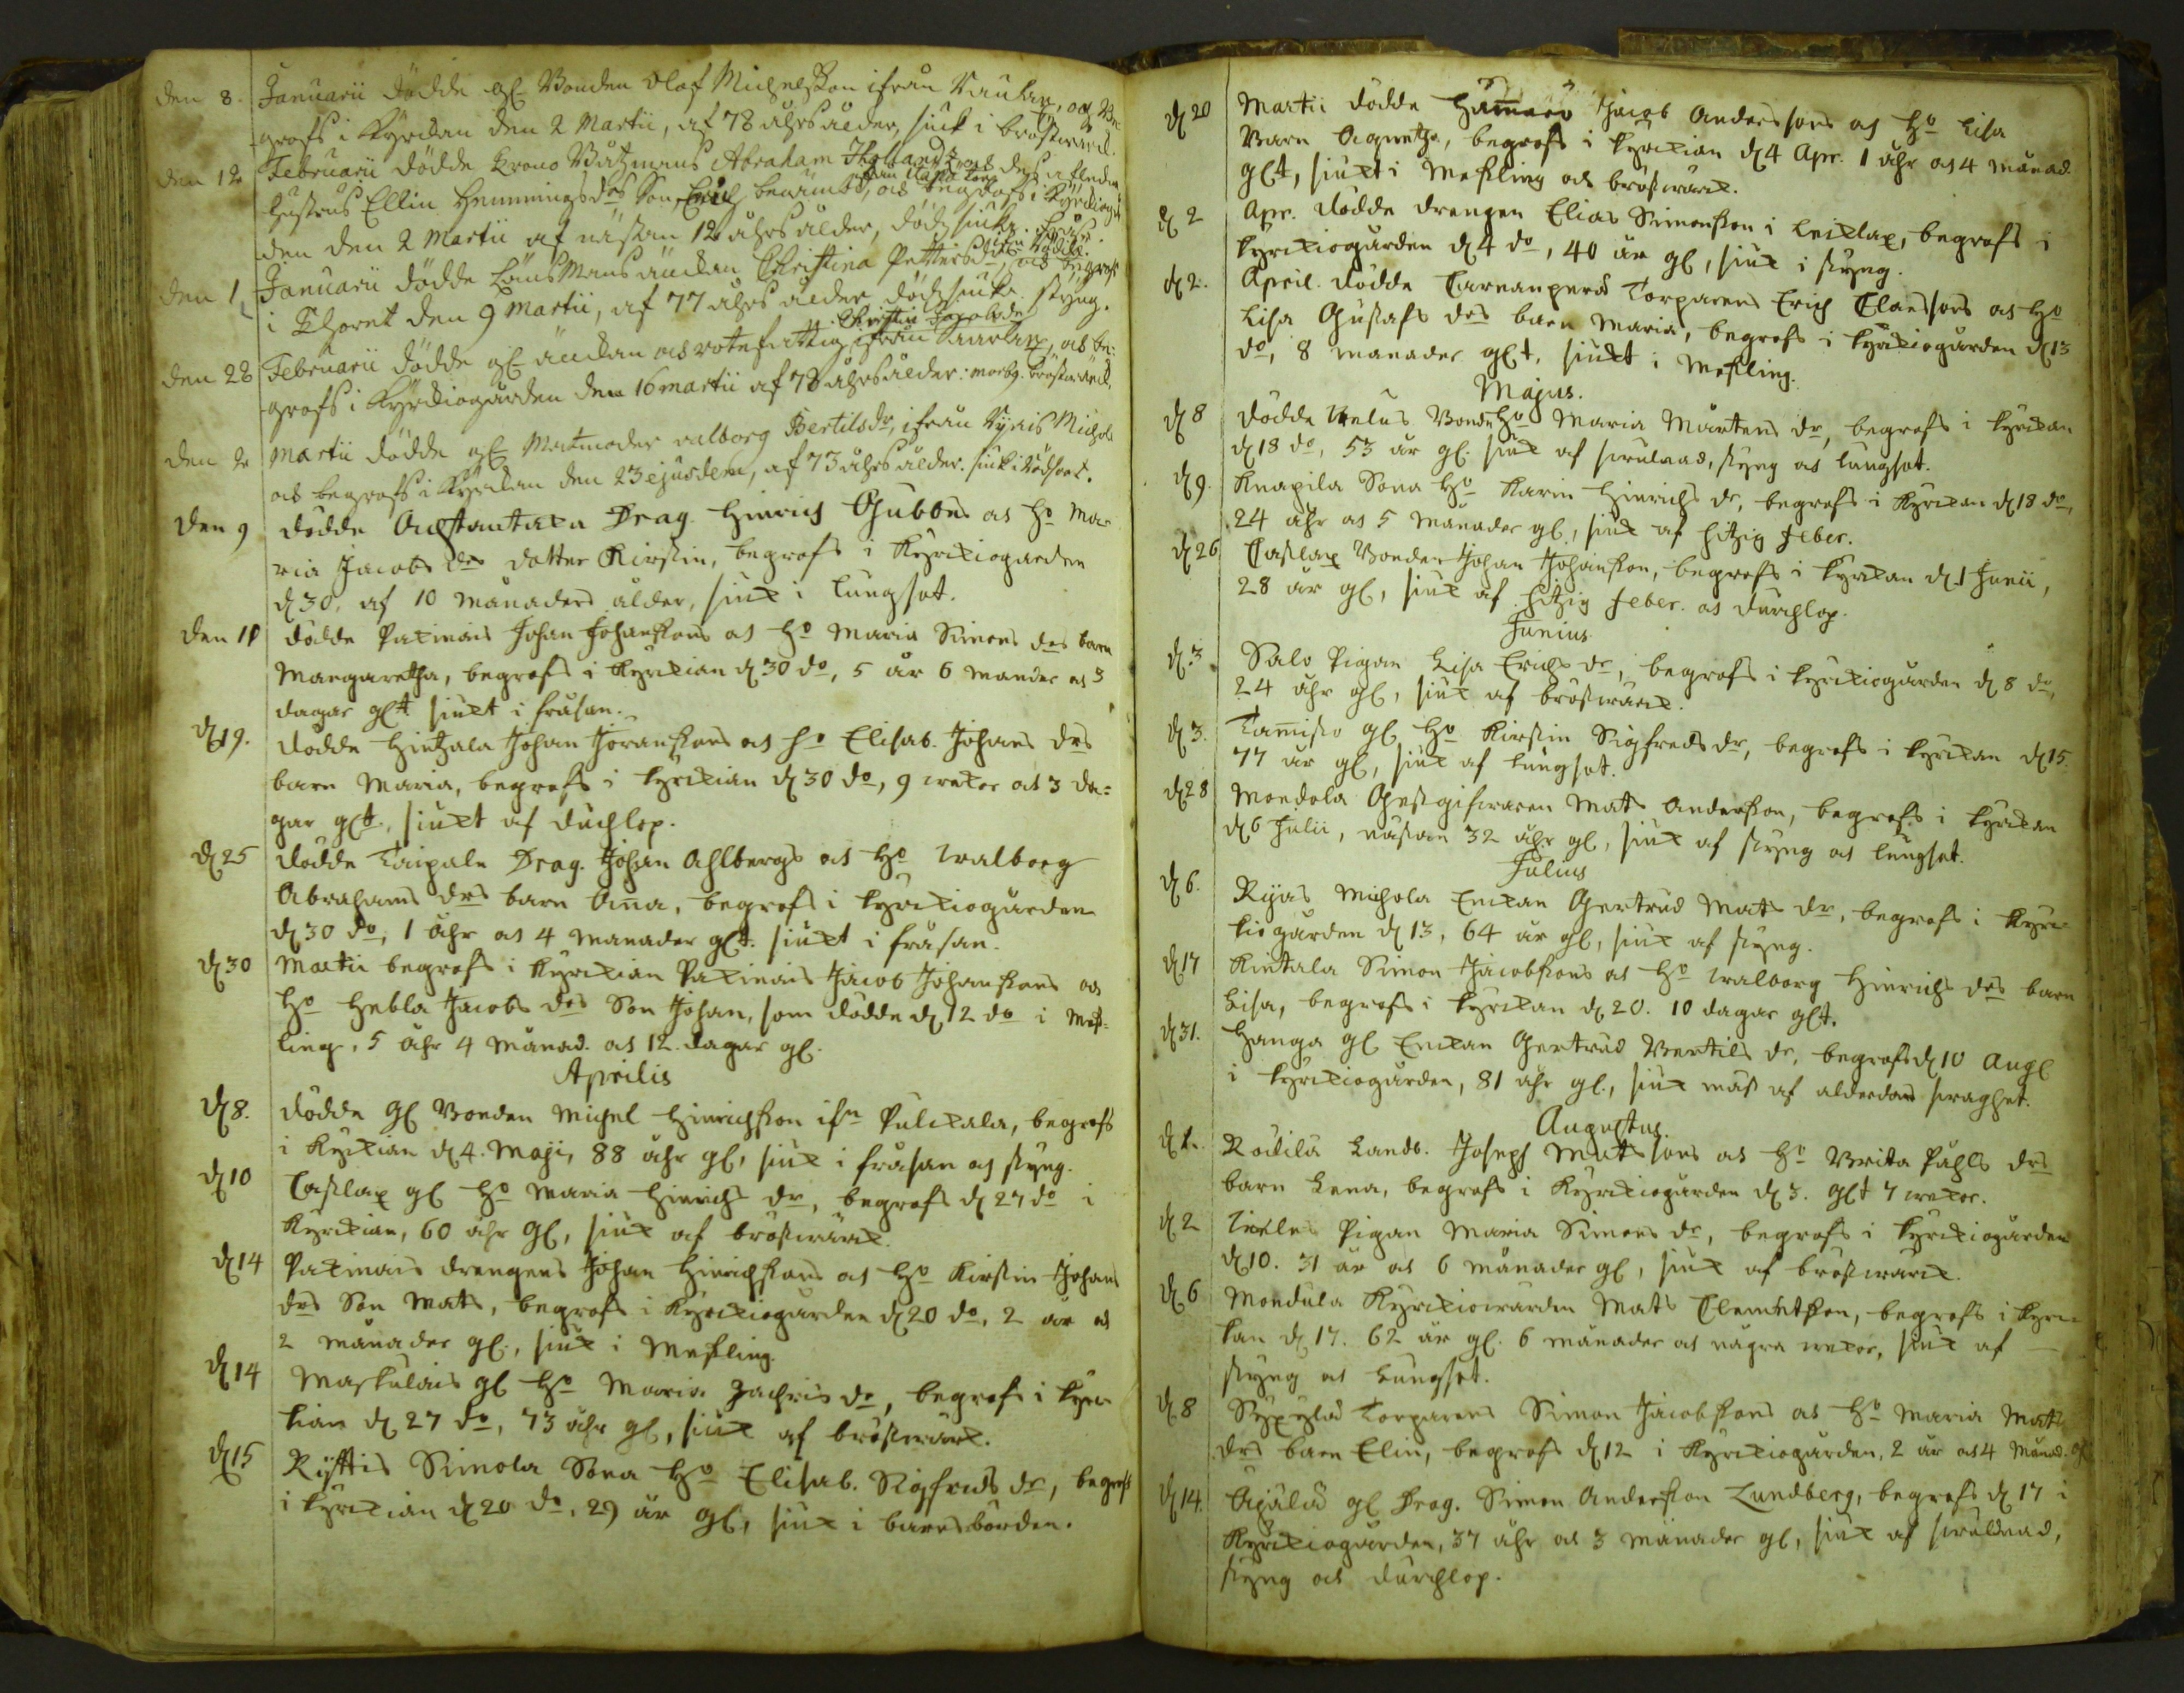 den 8. Januarii dödde gl. Bonden Olof Michelsson ifrån Naulax, och be-
grofs i Kyrckan den 2 Martii, af 78 åhrs ålder, siuk i bröstwerck.
den 12 Februarii dödde Krono Båtzmans Abraham desz afledne
hustrus Ellin Hemmingsdrs Son Erich benämbd, och begrofs i Kyrckiogår-
den den 2 Martii af nästan 12 åhrs ålder, dödz siuka
den 1 Januarii dödde Länsmans änckan Christina Pettersdr, och begrofs
i Choret den 9 Martii, af 77 åhrs ålder, dödz siuka styng.
Christin Jacobsdr
den 28 Februarii dödde gl. änckan och rotefattig ifrån Saarlax, och be-
grofs i Kyrckiogården den 16 martii af 78 åhrs ålder: morb. bröstwerck.
den 2 Martii dödde gl. Matmoder valborg Bertilsdr, ifrån Ryiäs Michola
och begrofs i Kyrckan den 23 ejusdem, af 73 åhrs ålder. siuk i
den 9 dödde Drag. Hinrich Gubbes och ho Ma-
ria Jacobs drs dotter Kirstin, begrofs i Kyrckiogården
d 30, af 10 månaders ålder, siuk i lungsot.
den 11 dödde Pakinais Johan Johanssons och ho Maria Simons drs barn
Margaretha, begrofs i Kyrckian d 30 do, 5 år 6 månder och 3
dagar glt siukt i fråsan.
d 19. dödde Hietzala Johan Jöranssons och ho Elisab. Johans drs
barn Maria, begrofs i Kyrckian d 30 do, 9 weckor och 3 da=
gar glt, siukt af duchlop.
d 25 dödde Taipale Drag. Johan Ahlbergs och Ho Walborg
Abrahams drs barn Anna, begrofs i Kyrckiogården
d 30 do, 1 åhr och 4 månader glt. siukt i fråsan.
d 30 Martii begrofs i Kyrckian Pakinais Jacob Johanssons och
Ho Hebla Jacobs drs Son Johan, som dödde d 12 do i Mess=
ling, 5 åhr 4 månad. och 12 dagar gl.
Aprilis
d 8. dödde gl Bonden Michel Hinrichsson ifn Pulckala, begrofs
i Kyrckian d 4. Maji, 88 åhr gl, siuk i fråsan och styng.
d 10 Caslax gl Ho Maria Hinrichs dr, begrofs d 27 do i
Kyrckian, 60 åhr gl, siuk af bröstwärck.
d 14 Pakinais drengens Johan Hinrichssons och Ho Kirstin Johans
drs Son Mats, begrofs i Kyrckiogården d 20 do, 2 år och
2 månader gl, siuk i Messling.
d 14 Maskulais gl Ho Maria Zachris dr, begrofs i Kyrc-
kian d 27 do, 73 åhr gl, siuk af bröstwärck.
d 15 Ryttis Simola Sona Ho Elisab. Sigfreds dr, begrofs
i Kyrckian d 20 do, 29 år gl, siuk i barnsborden.
d 20 Martii dödde Hammars Jacob Anderssons och Ho Lisa
Barn Agnetha, begrofs i Kyrckian d 4 Apr. 1 åhr och 4 månad.
glt, siukt i Messling och bröstwärck.
d 2 Apr. dödde Drengen Elias Simonsson i Leiklax, begrofs i
Kyrckiogården d 4 do, 40 år gl, siuk i styng.
d 2. April. dödde Torparens Erich Claessons och Ho
Lisa Gustafs drs barn Maria, begrofs i Kyrckiogården d 13
do, 8 månader glt, siukt i Messling.
Majus.
d 8 dödde Bonde Ho Maria Mårtens dr, begrofs i Kyrckan
d 18 do, 53 år gl. siuk af swulnad, styng och lungsot.
d 9. Knapila Sona Ho Karin Hinrichs dr, begrofs i Kyrckan d 18 do,
24 åhr och 5 månader gl, siuk af hitzig feber.
d 26 Caslax Bonden Johan Johansson, begrofs i Kyrckan d 1 Junii,
28 år gl, siuk af hitzig feber. och durchlop.
Junius
d 3 Salo Pigan Lisa Erichs dr, begrofs i Kyrckiogården d 8 do,
24 åhr gl, siuk af bröstwärck.
d 3. Tamisto gl Ho Kirstin Sigfreds dr, begrofs i Kyrckan d 15.
77 år gl, siuk af lungsot.
d 28 Mondola Gestgifwaren Mats Andersson, begrofs i Kyrckan
d 6 Julii, nästan 32 åhr gl, siuk af styng och lungsot.
Julius
d 6. Ryiäs Michola Enckan Gertrud Mats dr, begrofs i Kyrc-
kiogården d 13, 64 år gl, siuk af styng.
d 17 Kintala Simon Jacobssons och Ho Walborg Hinrichs drs barn
Lisa, begrofs i Kyrckan d 20. 10 dagar glt.
d 31. Hanga gl Enckan Gertrud Bertils dr, begrofs d 10 Aug.
i Kyrckiogården, 81 åhr gl, siuk mäst af alderdoms swaghet.
Augustus.
d 1. Rodila Landb. Joseph Matssons och Ho Brita Påhls drs
barn Lena, begrofs i Kyrckiogården d 3. glt 7 weckor.
d 2 Pigan Maria Simons dr, begrofs i Kyrckiogården
d 10. 31 år och 6 månader gl, siuk af bröstwärck.
d 6 Mondula Kyrckiowärden Mats Clemetsson, begrofs i Kyrc-
kan d 17. 62 år gl. 6 månader och några weckor, siuk af
styng och Lungsot.
d 8 Torparens Simon Jacobssons och Ho Maria Mats
drs barn Elin, begrofs d 12 i Kyrckiogården, 2 år och 4 månad. gl
d 14. gl Drag. Simon Andersson Lundberg, begrofs d 17 i
Kyrckiogården, 37 åhr och 3 månader gl, siuk af swulnad,
styng och durchlop.